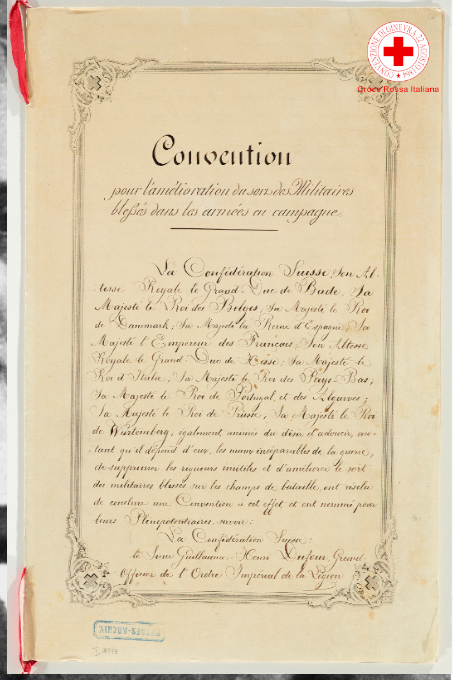 CONVENZIONE DI GINEVRA 22 AGOSTO 1864
Croce Rossa Italiana
Convention
pour l'amélioration du sort des Militaires
blessés dans les armées en campagne.
La Confédération Suisse, Son Al-
tesse Royale le Grand-Duc de Bade, Sa
Majesté le Roi des Belges, Sa Majesté le Roi
de Danemark, Sa Majesté la Reine d'Espagne, Sa
Majesté l'Empereur des Français, Son Altesse
Royale le Grand-Duc de Hesse, Sa Majesté le
Roi d'Italie, Sa Majesté le Roi des Pays-Bas,
Sa Majesté le Roi de Portugal et des Algarves,
Sa Majesté le Roi de Prusse, Sa Majesté le Roi
de Würtemberg, également animés du désir d'adoucir, au-
tant qu'il dépend d'eux, les maux inséparables de la guerre,
de supprimer les rigueurs inutiles et d'améliorer le sort
des militaires blessés sur les champs de bataille, ont résolu
de conclure une Convention à cet effet et ont nommé pour
leurs Plénipotentiaires, savoir:
La Confédération Suisse:
le Sieur Guillaume-Henri Dufour, Grand
Officier de l'Ordre Impérial de la Légion
BUNDES-ARCHIV